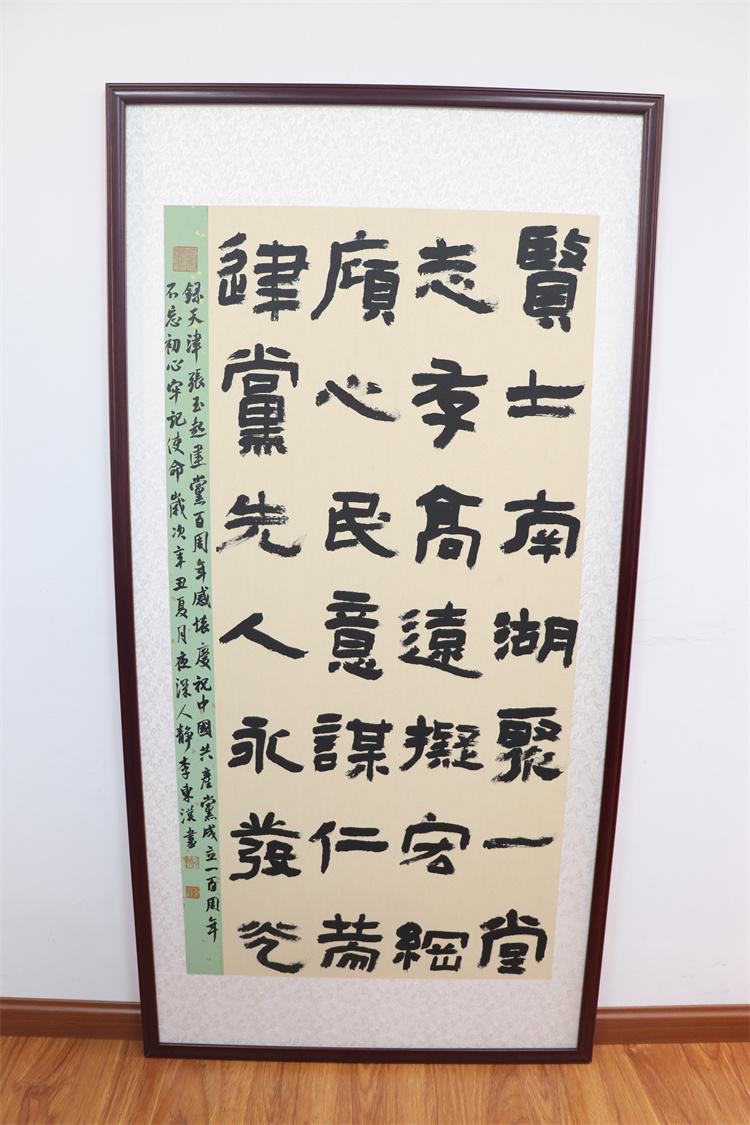 賢士南湖聚一堂
志存高遠擬宏綱
心民意謀仁耑
建黨先人永發光
録天津張玉起建黨百周年感懷慶祝中國共產黨成立一百周年
不忘初心牢記使命歲次辛丑夏月夜深人靜李東漢書